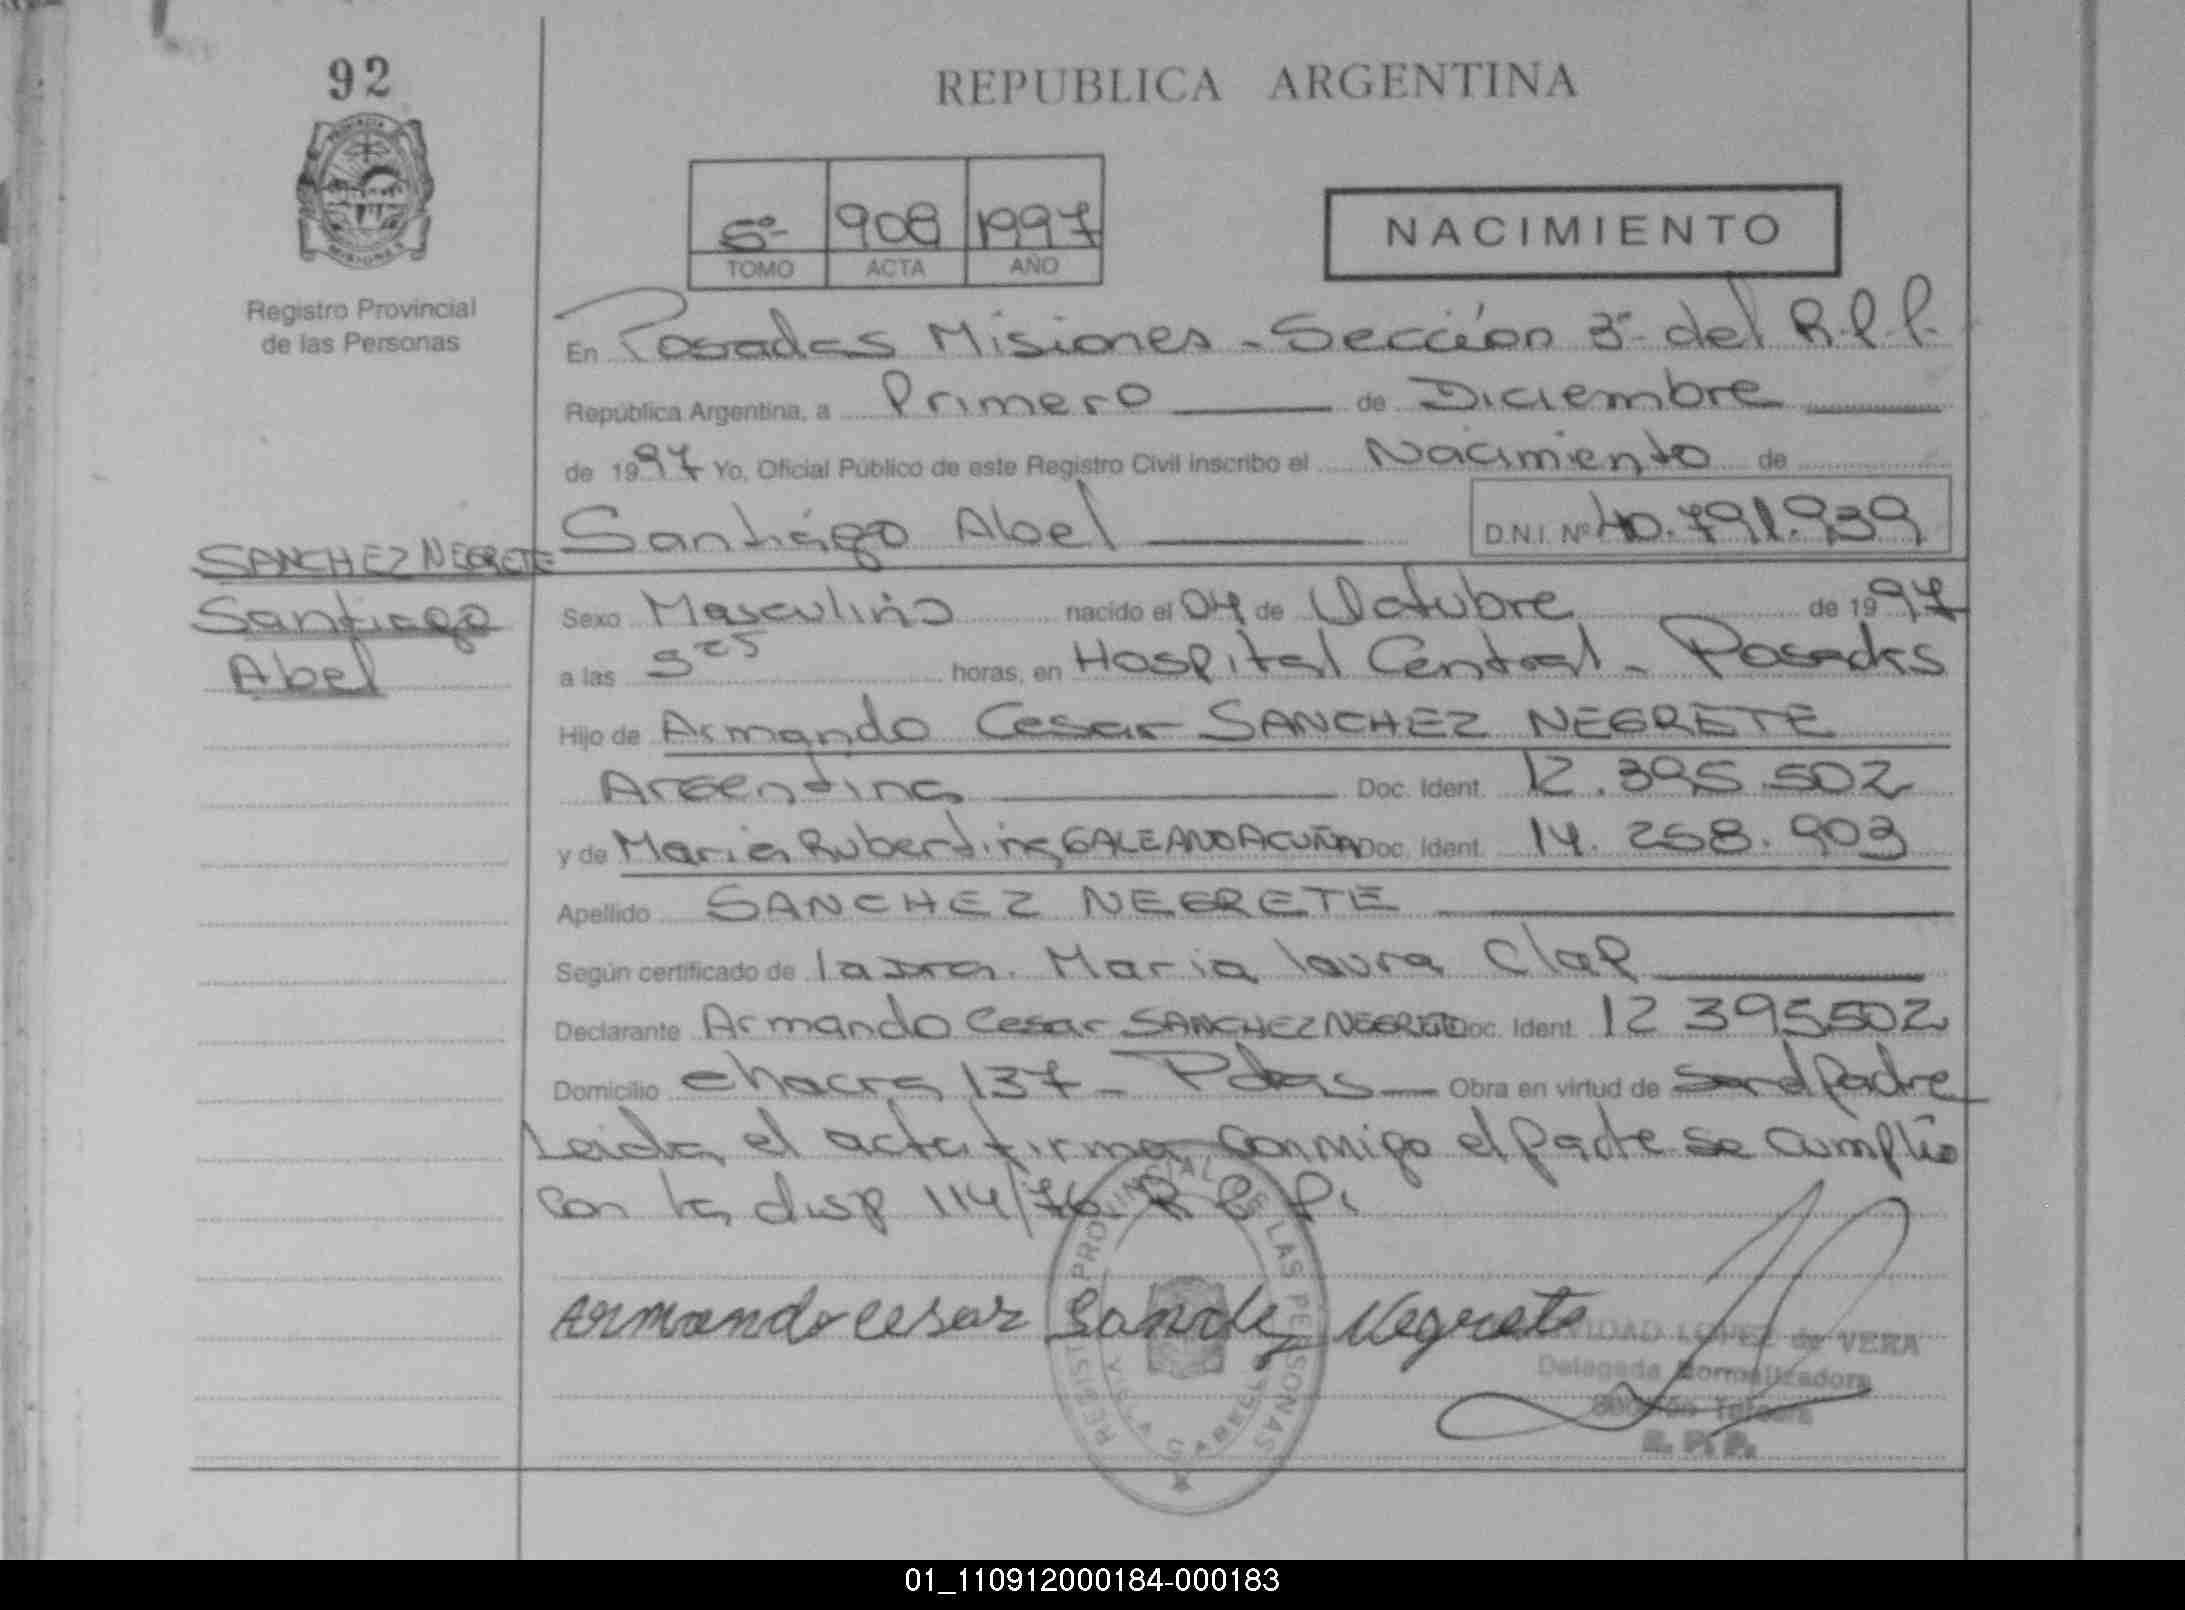 92
REPUBLICA ARGENTINA
PROVINCIA
MISIONES
5º- 908 1997
TOMO ACTA AÑO
NACIMIENTO
Registro Provincial
de las Personas
En Posadas Misiones - Sección 3ª- del R.P.P.
República Argentina, a Primero de Diciembre
de 1997 Yo, Oficial Público de este Registro Civil inscribo el Nacimiento de
Santiago Abel D.N.I. Nº 40.791.939
SANCHEZ NEGRETE
Santiago
Abel
Sexo Masculino nacido el 04 de Octubre de 1997
a las horas, en Hospital Central - Posadas
Hijo de Armando Cesar SANCHEZ NEGRETE
Argentina Doc. Ident. 12.395.502
y de Maria Rubertina GALEANO ACUÑA Doc. Ident. 14.268.903
Apellido SANCHEZ NEGRETE
Según certificado de la Maria laura Clap
Declarante Armando Cesar SANCHEZ NEGRETE Doc. Ident. 12 395502
Domicilio chacra 137 - Pdas Obra en virtud de ser el Padre
Leida el acta firma conmigo el padre se cumplio
con la disp 114/76 R P P.
Armando Cesar Sanchez Negrete
REGISTRO PROVINCIAL DE LAS PERSONAS
LOPEZ de VERA
Delegada Normalizadora
Sección Tercera
R. P. P.
01_110912000184-000183